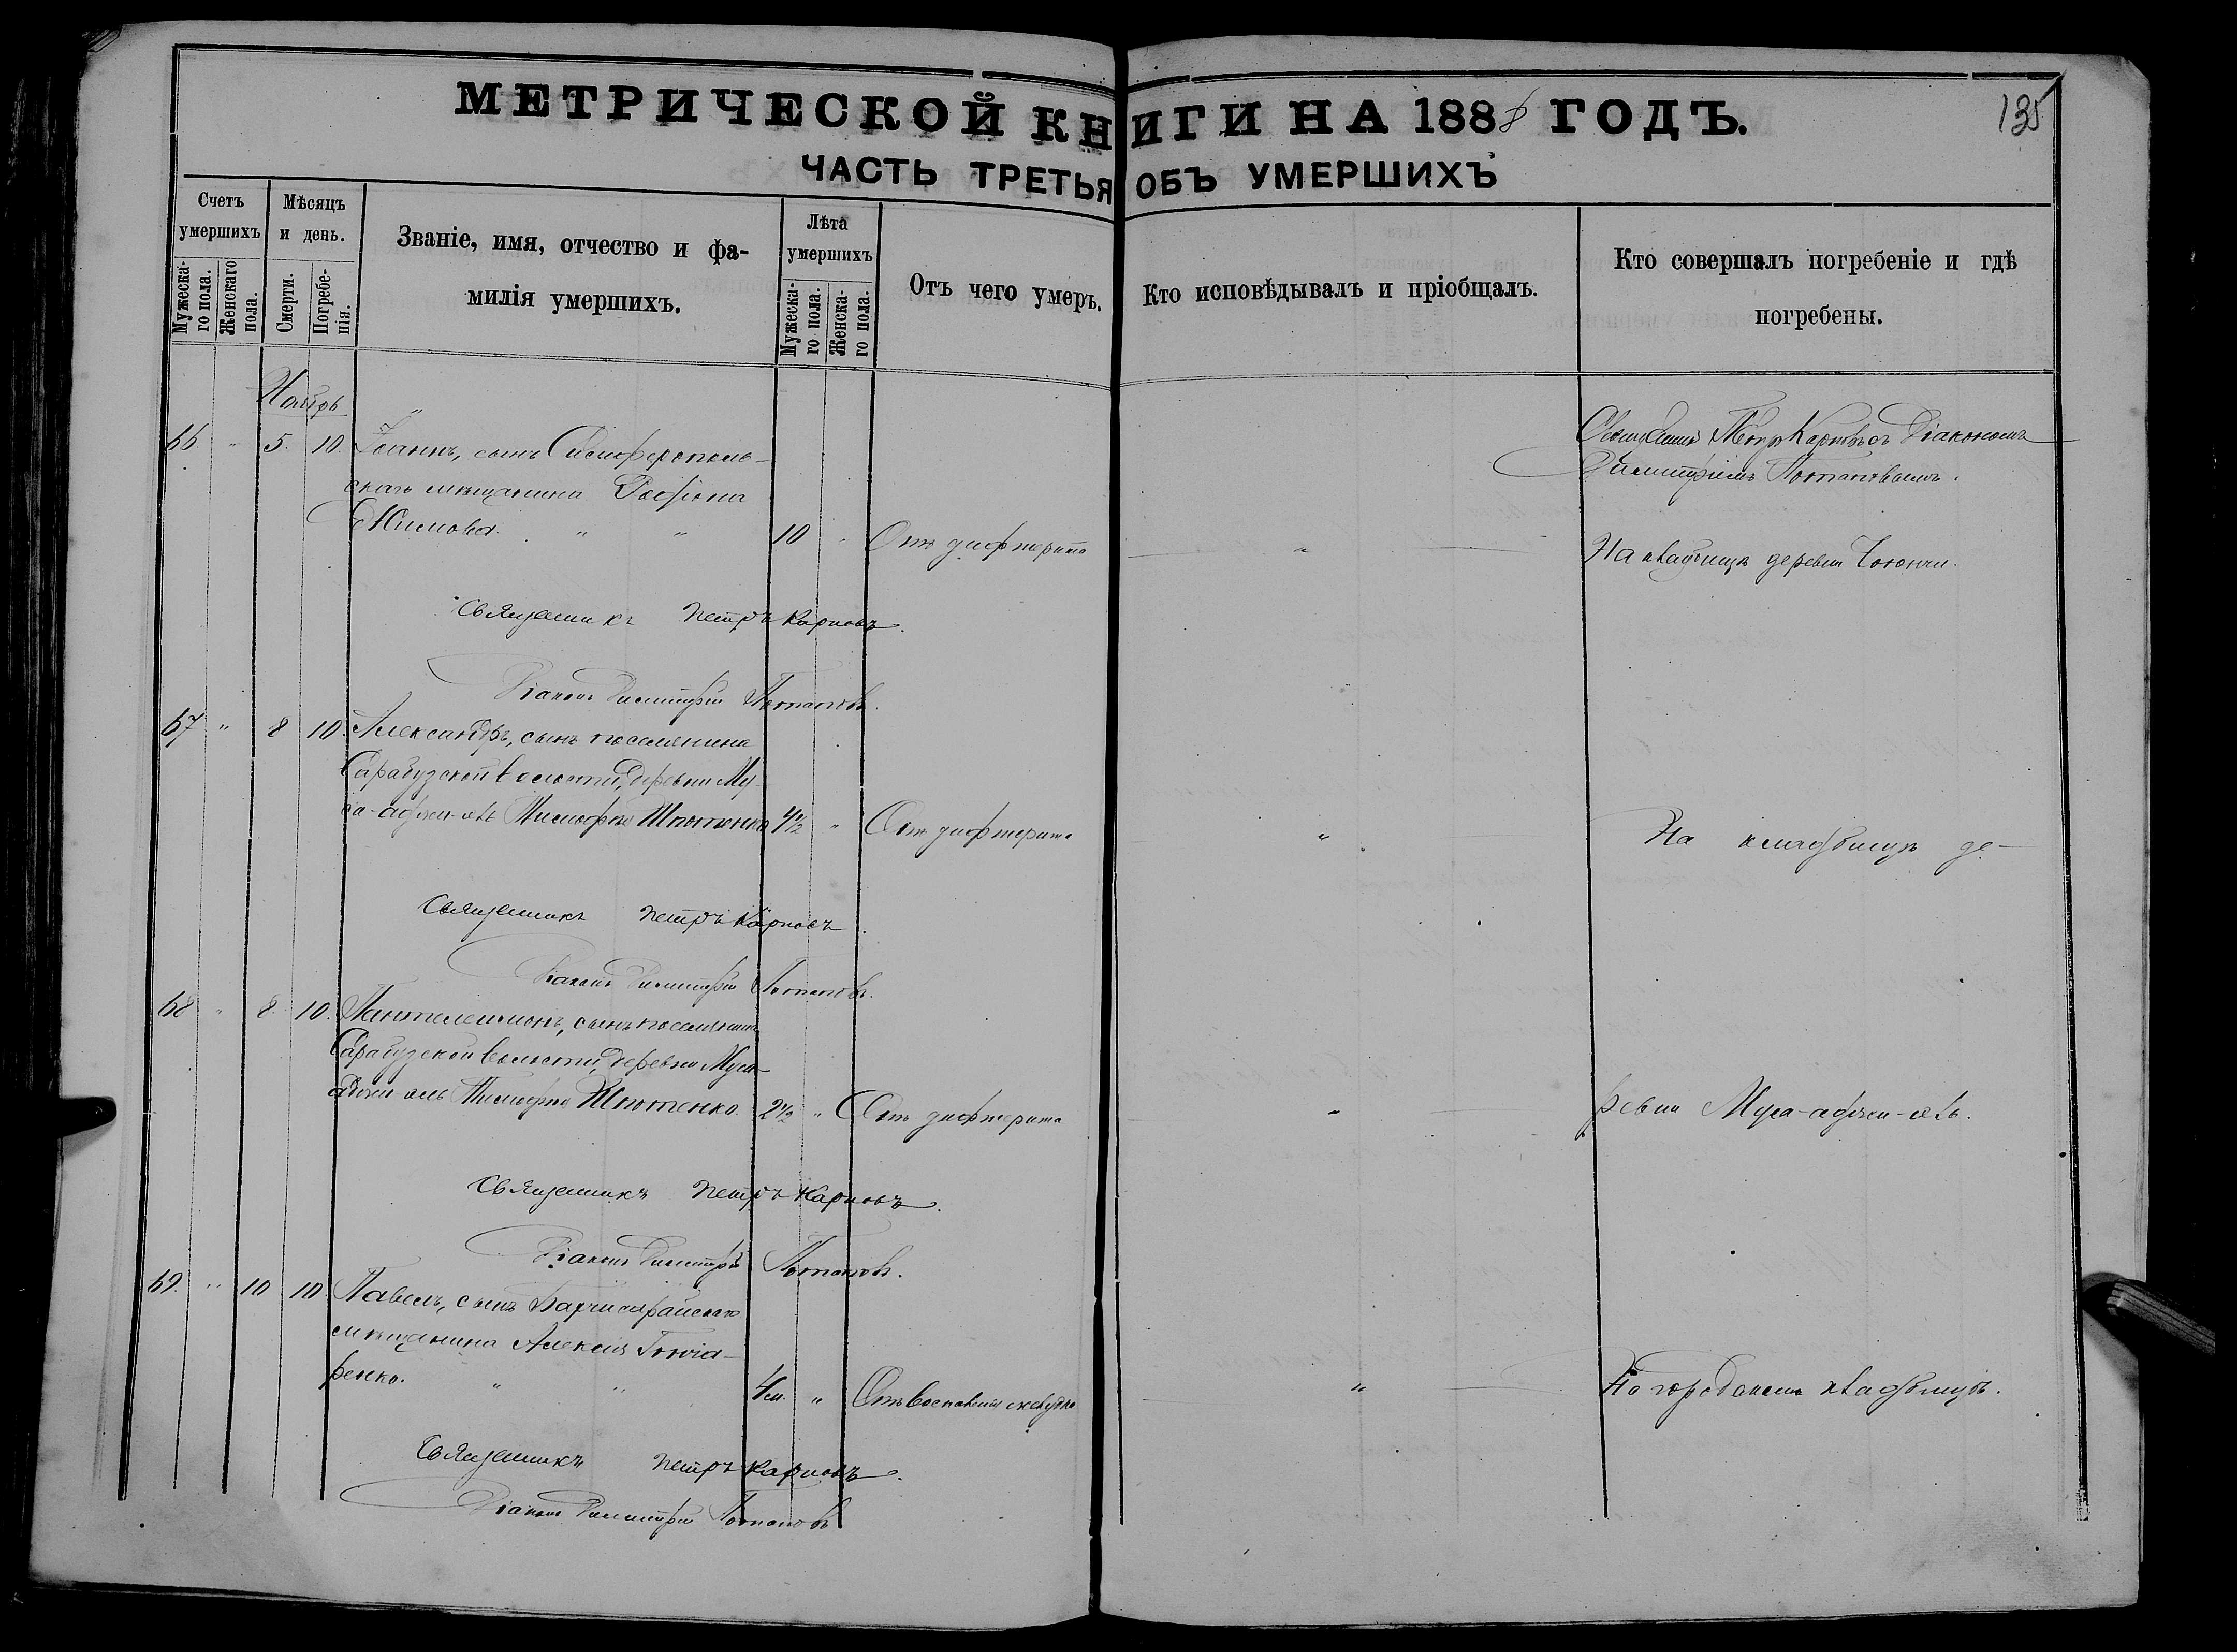 МЕТРИЧЕСКОЙ КНИГИ НА 1888 ГОДЪ.
135
ЧАСТЬ ТРЕТЬЯ ОБЪ УМЕРШИХЪ
Счетъ умершихъ
Мужеска-го пола.
Женскаго пола.
Мѣсяцъ и день.
Смерти.
Погребе-нія.
Званіе, имя, отчество и фа-
милія умершихъ.
Лѣта умершихъ
Мужеска-го пола.
Женска-го пола.
Отъ чего умеръ.
Кто исповѣдывалъ и пріобщалъ.
Кто совершалъ погребеніе и гдѣ
погребены.
Ноябрь
66 " 5. 10. Іоаннъ, сынъ Симферополь-
скаго мѣщанина
Екимова. " " 10 " Отъ дифтерита "
Петръ Карповъ съ Діакономъ
Димитріемъ Потаповымъ.
На кладбищѣ деревни
Священникъ Петръ Карповъ.
Діаконъ Димитрій Потаповъ.
67 " 8 10. Александръ, сынъ поселянина
Сарабузской волости, деревни Му-
са-аджи-эль Тимофея 4½ " Отъ дифтерита " На кладбищѣ де-
Священникъ Петръ Карповъ.
Діаконъ Димитрій Потаповъ.
68 " 8. 10. Пантелеимонъ, сынъ поселянина
Сарабузской волости, деревни Муса-
аджи эль Тимофея 2½ " Отъ дифтерита " ревни Муса-аджи-эль.
Священникъ Петръ Карповъ.
Діаконъ Димитрій Потаповъ.
69. " 10 10. Павелъ, сынъ Бахчисарайскаго
мѣщанина Алексія Гонча-
ренко. " " 4 м. " Отъ воспаленія желудка " На городскомъ кладбищѣ.
Священникъ Петръ Карповъ.
Діаконъ Димитрій Потаповъ